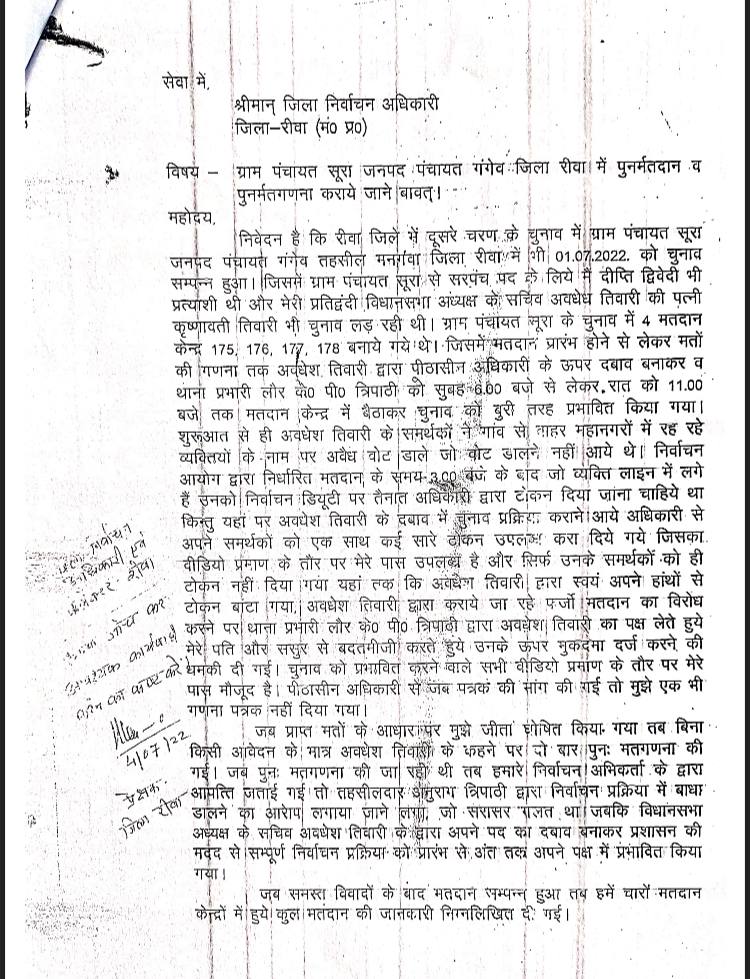 सेवा में,
श्रीमान् जिला निर्वाचन अधिकारी
जिला–रीवा (मं0 प्र0)
विषय – ग्राम पंचायत सूरा जनपद पंचायत गंगेव जिला रीवा में पुनर्मतदान व
पुनर्मतगणना कराये जाने बावत्।
महोदय,
निवेदन है कि रीवा जिले में दूसरे चरण के चुनाव में ग्राम पंचायत सूरा
जनपद पंचायत गंगेव तहसील मनगंवा जिला रीवा में भी 01.07.2022. को चुनाव
सम्पन्न हुआ। जिसमें ग्राम पंचायत सूरा से सरपंच पद के लिये मैं दीप्ति द्विवेदी भी
प्रत्याशी थी और मेरी प्रतिद्वंदी विधानसभा अध्यक्ष के सचिव अवधेश तिवारी की पत्नी
कृष्णावती तिवारी भी चुनाव लड़ रही थी। ग्राम पंचायत सूरा के चुनाव में 4 मतदान
केन्द्र 175, 176, 177, 178 बनाये गये थे। जिसमें मतदान प्रारंभ होने से लेकर मतों
की गणना तक अवधेश तिवारी द्वारा पीठासीन अधिकारी के ऊपर दबाव बनाकर व
थाना प्रभारी लौर के0 पी0 त्रिपाठी को सुबह 6.00 बजे से लेकर रात को 11.00
बजे तक मतदान केन्द्र में बैठाकर चुनाव को बुरी तरह प्रभावित किया गया।
शुरूआत से ही अवधेश तिवारी के समर्थकों ने गांव से बाहर महानगरों में रह रहे
व्यक्तियों के नाम पर अवैध वोट डाले जो वोट डालने नहीं आये थे। निर्वाचन
आयोग द्वारा निर्धारित मतदान के समय 3.00 बजे के बाद जो व्यक्ति लाइन में लगे
हैं उनको निर्वाचन डियूटी पर तैनात अधिकारी द्वारा टोकन दिया जाना चाहिये था
किन्तु यहां पर अवधेश तिवारी के दबाव में चुनाव प्रक्रिया कराने आये अधिकारी से
अपने समर्थकों को एक साथ कई सारे टोकन उपलब्ध करा दिये गये जिसका
वीडियो प्रमाण के तौर पर मेरे पास उपलब्ध है और सिर्फ उनके समर्थकों को ही
टोकन नहीं दिया गया यहां तक कि अवधेश तिवारी द्वारा स्वयं अपने हांथों से
टोकन बांटा गया, अवधेश तिवारी द्वारा कराये जा रहे फर्जी मतदान का विरोध
करने पर थाना प्रभारी लौर के0 पी0 त्रिपाठी द्वारा अवधेश तिवारी का पक्ष लेते हुये
मेरे पति और ससुर से बदतमीजी करते हुये उनके ऊपर मुकदमा दर्ज करने की
धमकी दी गई। चुनाव को प्रभावित करने वाले सभी वीडियो प्रमाण के तौर पर मेरे
पास मौजूद है। पीठासीन अधिकारी से जब पत्रकं की मांग की गई तो मुझे एक भी
गणना पत्रक नहीं दिया गया।
जब प्राप्त मतों के आधार पर मुझे जीता घोषित किया गया तब बिना
किसी आवेदन के मात्र अवधेश तिवारी के कहने पर दो बार पुनः मतगणना की
गई। जब पुनः मतगणना की जा रही थी तब हमारे निर्वाचन अभिकर्ता के द्वारा
आपत्ति जताई गई तो तहसीलदार अनुराग त्रिपाठी द्वारा निर्वाचन प्रक्रिया में बाधा
डालने का आरोप लगाया जाने लगा, जो सरासर गलत था जबकि विधानसभा
अध्यक्ष के सचिव अवधेश तिवारी के द्वारा अपने पद का दबाव बनाकर प्रशासन की
मदद से सम्पूर्ण निर्वाचन प्रक्रिया को प्रारंभ से अंत तक अपने पक्ष में प्रभावित किया
गया।
जब समस्त विवादों के बाद मतदान सम्पन्न हुआ तब हमें चारों मतदान
केन्द्रों में हुये कुल मतदान की जानकारी निम्नलिखित दी गई।
जिला निर्वाचन
अधिकारी एवं
कलेक्टर रीवा
कृपया जाँच कर
आवश्यक कार्यवाही
करने का कष्ट करें
4/07/22
प्रेक्षक
जिला रीवा